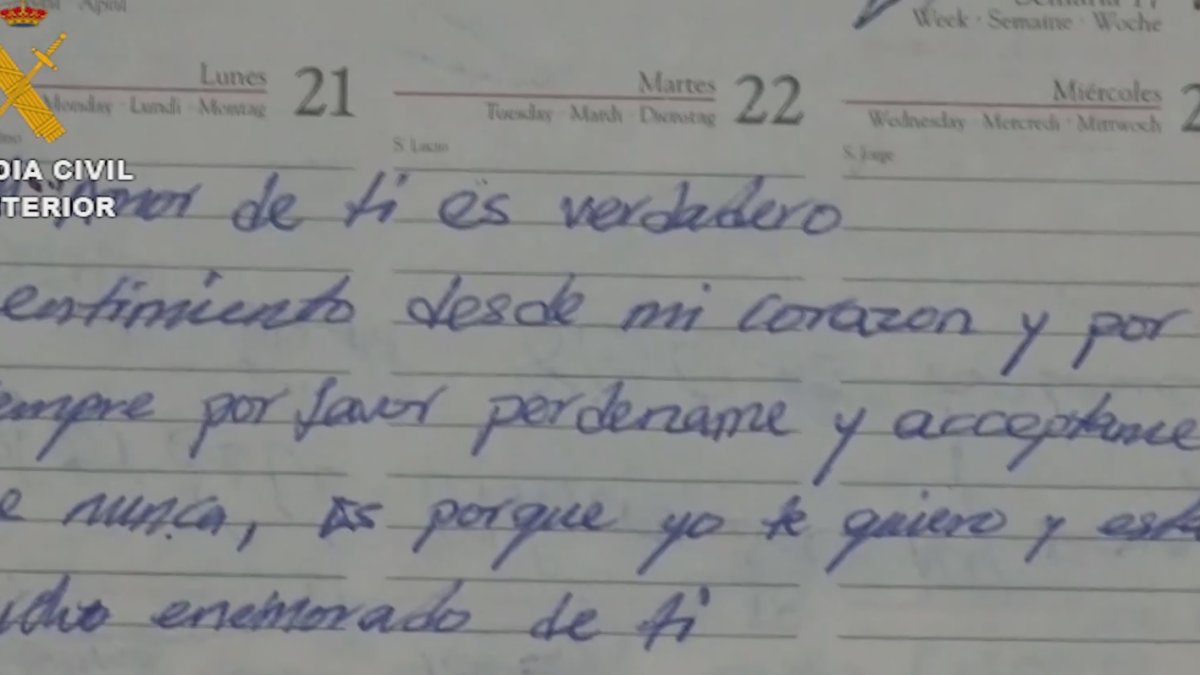 Week · Semaine · Woche
Lunes 21
Monday · Lundi · Montag
Martes 22
Tuesday · Mardi · Dienstag
Miércoles
Wednesday · Mercredi · Mittwoch
S. Lucio
S. Jorge
DIA CIVIL
TERIOR
Amor de ti es verdadero
entimiento desde mi corazon y por
empre por favor perdename y acceptame
e nunca, Es porque yo te quiero y esto
enemorado de ti